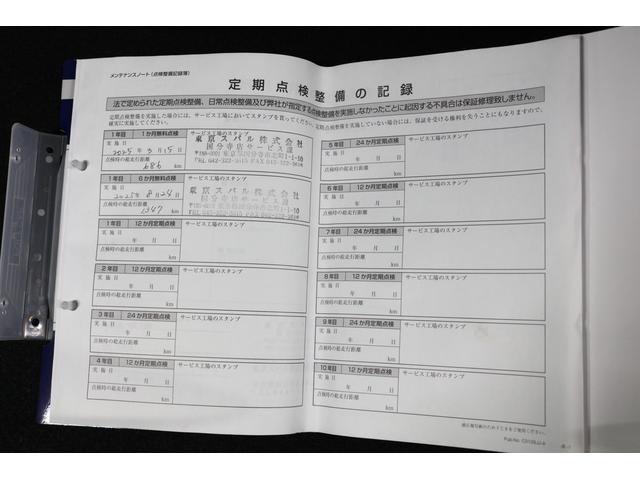 メンテナンスノート（点検整備記録簿）
定期点検整備の記録
法で定められた定期点検整備、日常点検整備及び弊社が指定する点検整備を実施しなかったことに起因する不具合は保証修理致しません。
定期点検整備を実施した場合には、サービス工場においてスタンプを貰ってください。定期点検整備を実施していない場合には、保証を受ける権利を失うことにもなりますので、
確実に実施してください。
1年目 1か月無料点検 サービス工場のスタンプ
実施日
2025年3月15日
点検時の総走行距離
686 km
東京スバル株式会社
国分寺店サービス課
1年目 6か月無料点検 サービス工場のスタンプ
実施日
2025年8月24日
点検時の総走行距離
1347 km
東京スバル株式会社
国分寺店サービス課
1年目 12か月定期点検 サービス工場のスタンプ
実施日
年 月 日
点検時の総走行距離
km
2年目 12か月定期点検 サービス工場のスタンプ
実施日
年 月 日
点検時の総走行距離
km
3年目 24か月定期点検 サービス工場のスタンプ
実施日
年 月 日
点検時の総走行距離
km
4年目 12か月定期点検 サービス工場のスタンプ
実施日
年 月 日
点検時の総走行距離
km
5年目 24か月定期点検 サービス工場のスタンプ
実施日
年 月 日
点検時の総走行距離
km
6年目 12か月定期点検 サービス工場のスタンプ
実施日
年 月 日
点検時の総走行距離
km
7年目 24か月定期点検 サービス工場のスタンプ
実施日
年 月 日
点検時の総走行距離
km
8年目 12か月定期点検 サービス工場のスタンプ
実施日
年 月 日
点検時の総走行距離
km
9年目 24か月定期点検 サービス工場のスタンプ
実施日
年 月 日
点検時の総走行距離
km
10年目 12か月定期点検 サービス工場のスタンプ
実施日
年 月 日
点検時の総走行距離
km